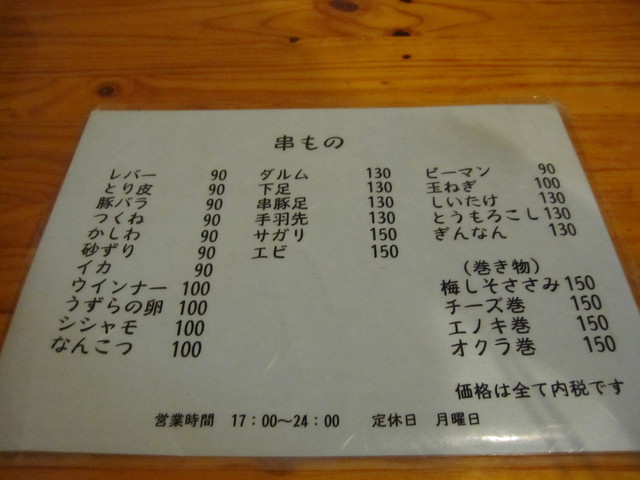 串もの
レバー 90
とり皮 90
豚バラ 90
つくね 90
かしわ 90
砂ずり 90
イカ 90
ウインナー 100
うずらの卵 100
シシャモ 100
なんこつ 100
ダルム 130
下足 130
串豚足 130
手羽先 130
サガリ 150
エビ 150
ピーマン 90
玉ねぎ 100
しいたけ 130
とうもろこし 130
ぎんなん 130
(巻き物)
梅しそささみ 150
チーズ巻 150
エノキ巻 150
オクラ巻 150
価格は全て内税です
営業時間 17:00〜24:00 定休日 月曜日